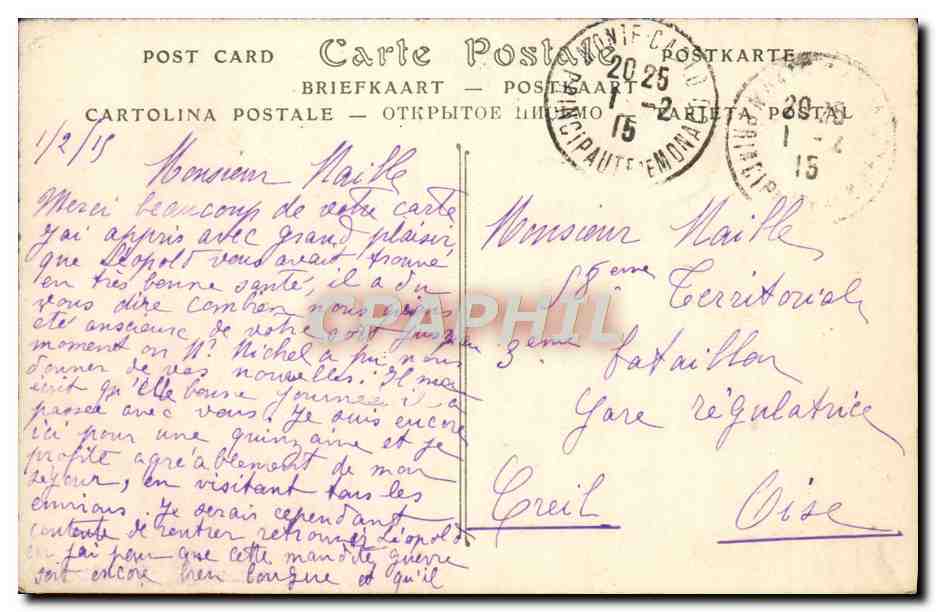 POST CARD Carte Postale POSTKARTE
BRIEFKAART — POSTKAART
CARTOLINA POSTALE — ОТКРЫТОЕ ПИСЬМО — TARJETA POSTAL
MONTE-CARLO
20 25
1 -2
15
PRINCIPAUTE DE MONACO
20 25
1 -2
15
PRINCIP
1/2/15
Monsieur Maille
Merci beaucoup de votre carte
J'ai appris avec grand plaisir
que Léopold vous avait trouvé
en très bonne santé, il a du
vous dire combien nous avions
été anscieuse de votre sort jusqu'au
moment ou Mr. Michel a pu nous
donner de vos nouvelles. Il m'a
écrit qu'elle bonne journée il a
passée avec vous. Je suis encore
ici pour une quinzaine et je
profite agréablement de mon
séjour, en visitant tous les
environs. Je serais cependant
contente de rentrer retrouver Léopold
j'ai peur que cette maudite guerre
soit encore bien longue et qu'il
Monsieur Maille
58eme Territorial
3eme bataillon
Gare régulatrice
Creil Oise
CPAPHIL